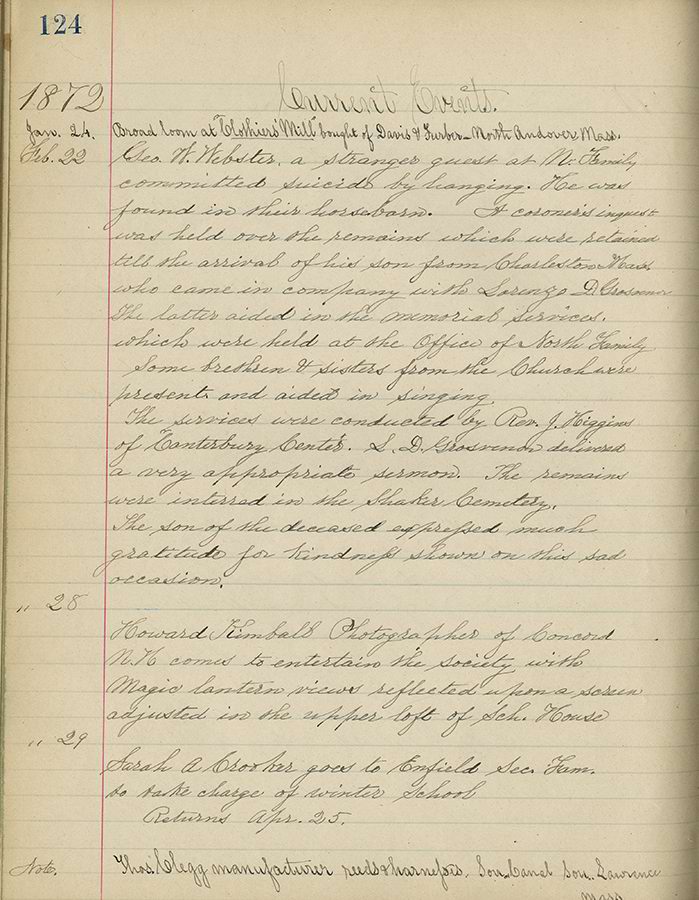 124
Current Events.
1872
Jan. 24. Broad loom at "Clothiers' Mill" bought of Davis & Furber - North Andover Mass.
Feb. 22 Geo. W. Webster, a stranger guest at N. Family
committed suicide by hanging. He was
found in their horsebarn. A coroner's inquest
was held over the remains which were retained
till the arrival of his son from Charleston Mass.
who came in company with Lorenzo D. Grosvenor
The latter aided in the memorial services.
which were held at the Office of North Family
Some brethren & sisters from the Church were
present and aided in singing.
The services were conducted by Rev. J. Higgins
of Canterbury Center. L. D. Grosvenor delivered
a very appropriate sermon. The remains
were interred in the Shaker Cemetery.
The son of the deceased expressed much
gratitude for kindness shown on this sad
occasion.
" 28
Howard Kimball Photographer of Concord
N.H. comes to entertain the society with
Magic lantern views reflected upon a screen
adjusted in the upper loft of Sch. House
" 29
Sarah A Crooker goes to Enfield Sec. Fam.
to take charge of winter school
Returns Apr. 25.
Note. Thos. Clegg manufacturer reeds & harnesses. Sou. Canal Sou. Lawrence
Mass